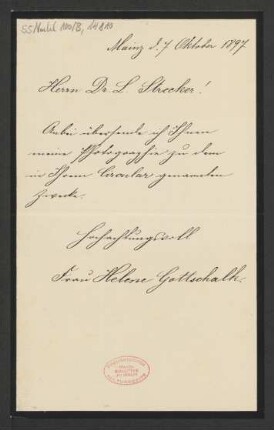 Mainz d. 7 Oktober 1897.
Herrn Dr. L. Strecker!
Anbei übersende ich Ihnen
meine Photographie zu dem
in Ihrem Circular genannten
Zwecke.
Hochachtungsvoll
Frau Helene Gottschalk.